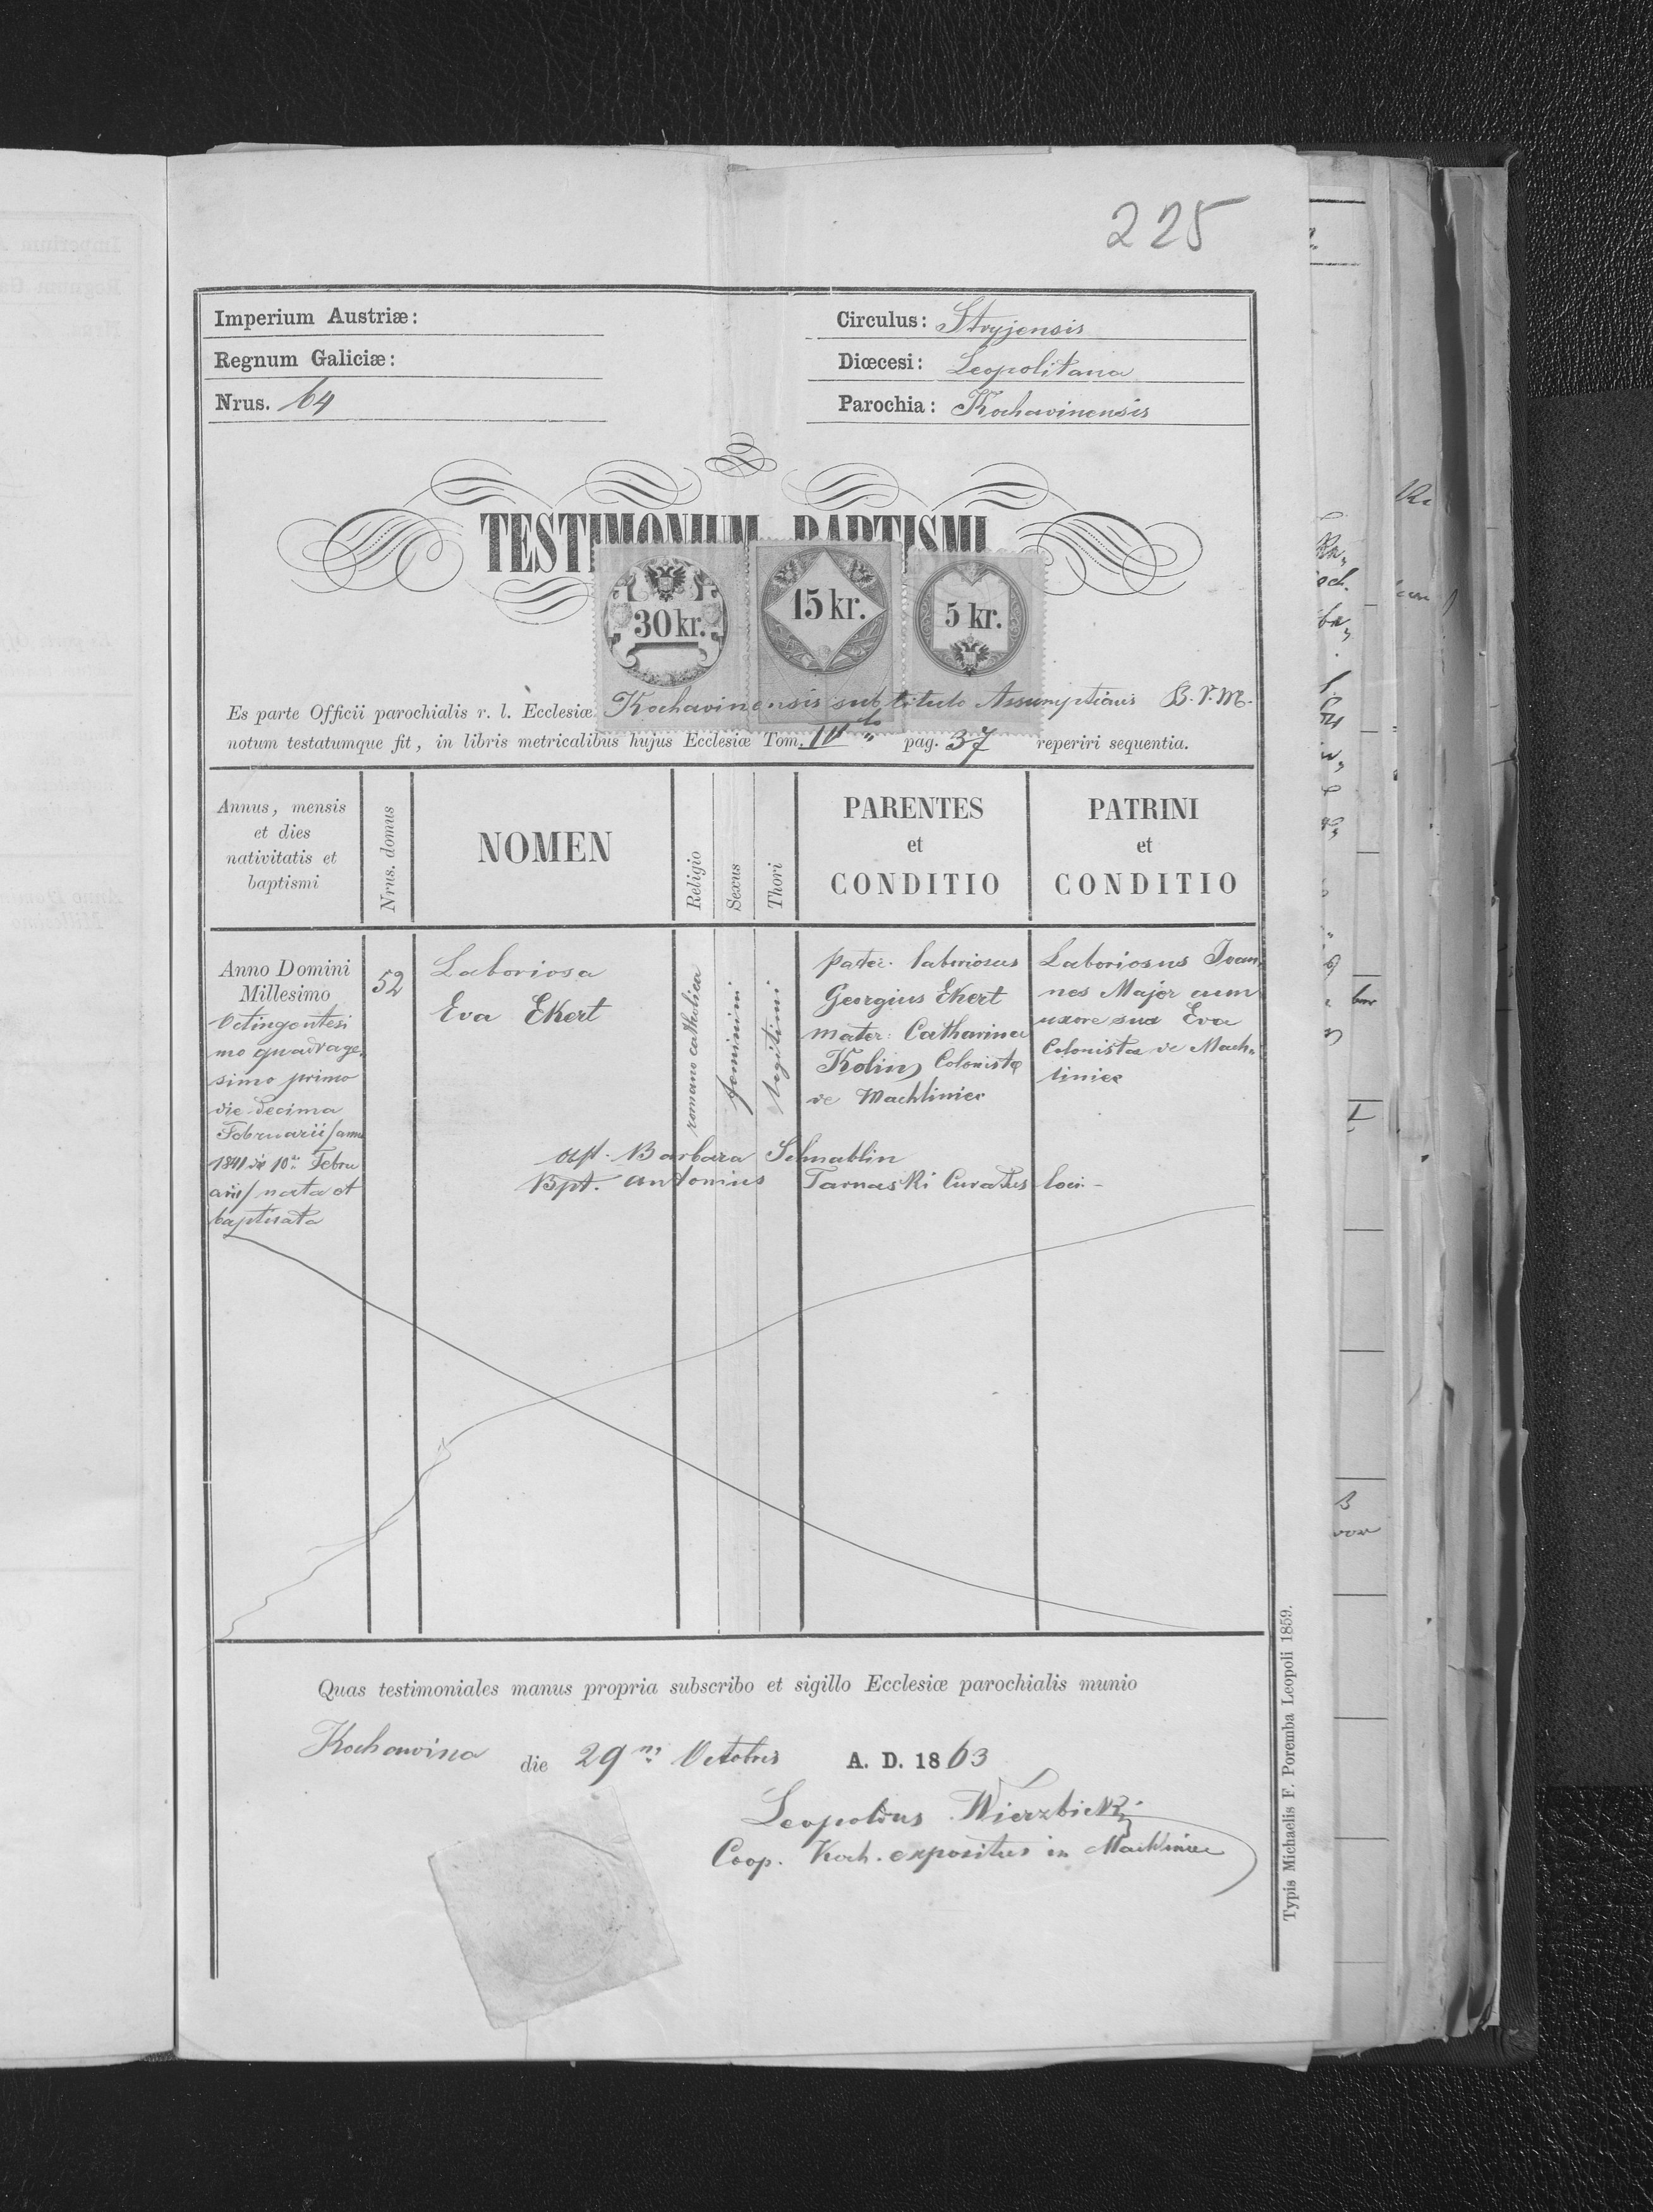 225
Imperium Austriæ:
Circulus: Stryjensis
Regnum Galiciæ:
Diœcesi: Leopolitana
Nrus. 64
Parochia: Kochavinensis
TESTIMONIUM BAPTISMI
30 kr.
15 kr.
5 kr.
Es parte Officii parochialis r. l. Ecclesiæ Kochavinensis sub titulo Assumptionis B. V. M.
notum testatumque fit, in libris metricalibus hujus Ecclesiæ Tom. pag. 37 reperiri sequentia.
Annus, mensis
et dies
nativitatis et
baptismi
Nrus. domus
NOMEN
Religio
Sexus
Thori
PARENTES
et
CONDITIO
PATRINI
et
CONDITIO
Anno Domini
Millesimo
Octingentesi
mo quadrage
simo primo
die decima
Februarii /anno
1841 die 10a Febru
arii/ nata et
baptisata
52
Laboriosa
Eva Ekert
romano catholica
feminini
legitimi
pater. laboriosus
Georgius Ekert
mater: Catharina
Kolin, Colonistæ
de Machliniec
Laboriosus Joan
nes Major cum
uxore sua Eva
Colonistæ de Mach-
liniec
ast. Barbara Schnablin
Bpt. Antonius Tarnaski Curatus loci.-
Quas testimoniales manus propria subscribo et sigillo Ecclesiæ parochialis munio
Kochawina die 29na Octobris A. D. 1863
Leopoldus Wierzbicki
Coop. Koch. expositus in Machliniec
Typis Michaelis F. Poremba Leopoli 1859.